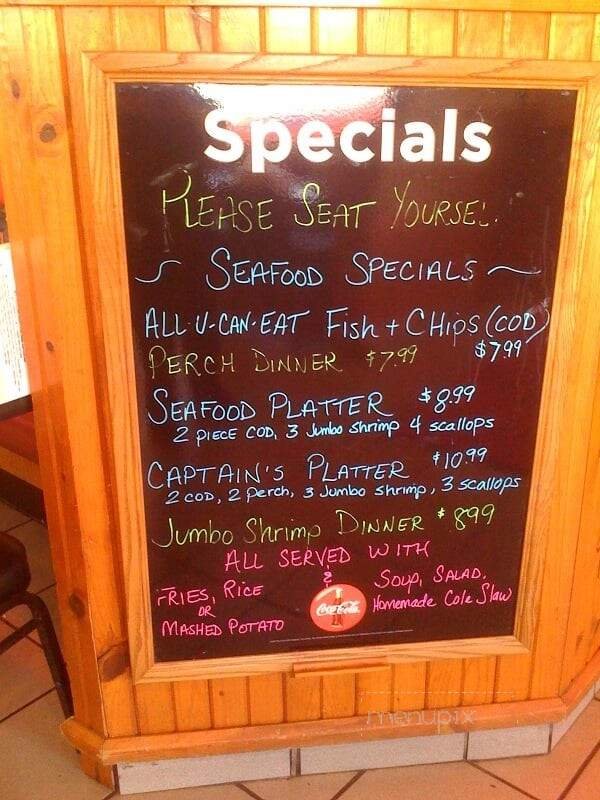 Specials
PLEASE SEAT YOURSEL.
SEAFOOD SPECIALS
ALL-U-CAN-EAT Fish + CHips (COD)
$7.99
PERCH DINNER $7.99
SEAFOOD PLATTER $8.99
2 PIECE COD, 3 Jumbo Shrimp 4 scallops
CAPTAIN'S PLATTER $10.99
2 COD, 2 Perch, 3 Jumbo Shrimp, 3 scallops
Jumbo Shrimp DINNER $899
ALL SERVED WITH
FRIES, RICE
OR
MASHED POTATO
&
Soup, SALAD,
Homemade Cole Slaw
Coca-Cola
menupix